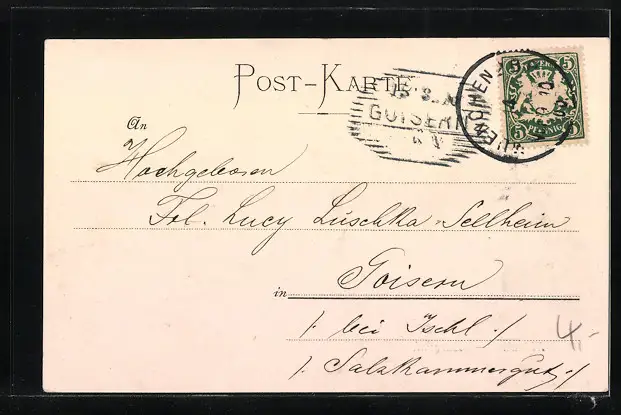 POST-KARTE
An
Hochgeboren
Frl. Lucy Luschka-Sellheim
in Goisern
/: bei Ischl :/
/: Salzkammergut :/
4,-
GOISERN
MÜNCHEN
BAYERN
5 5
5 PFENNIG 5